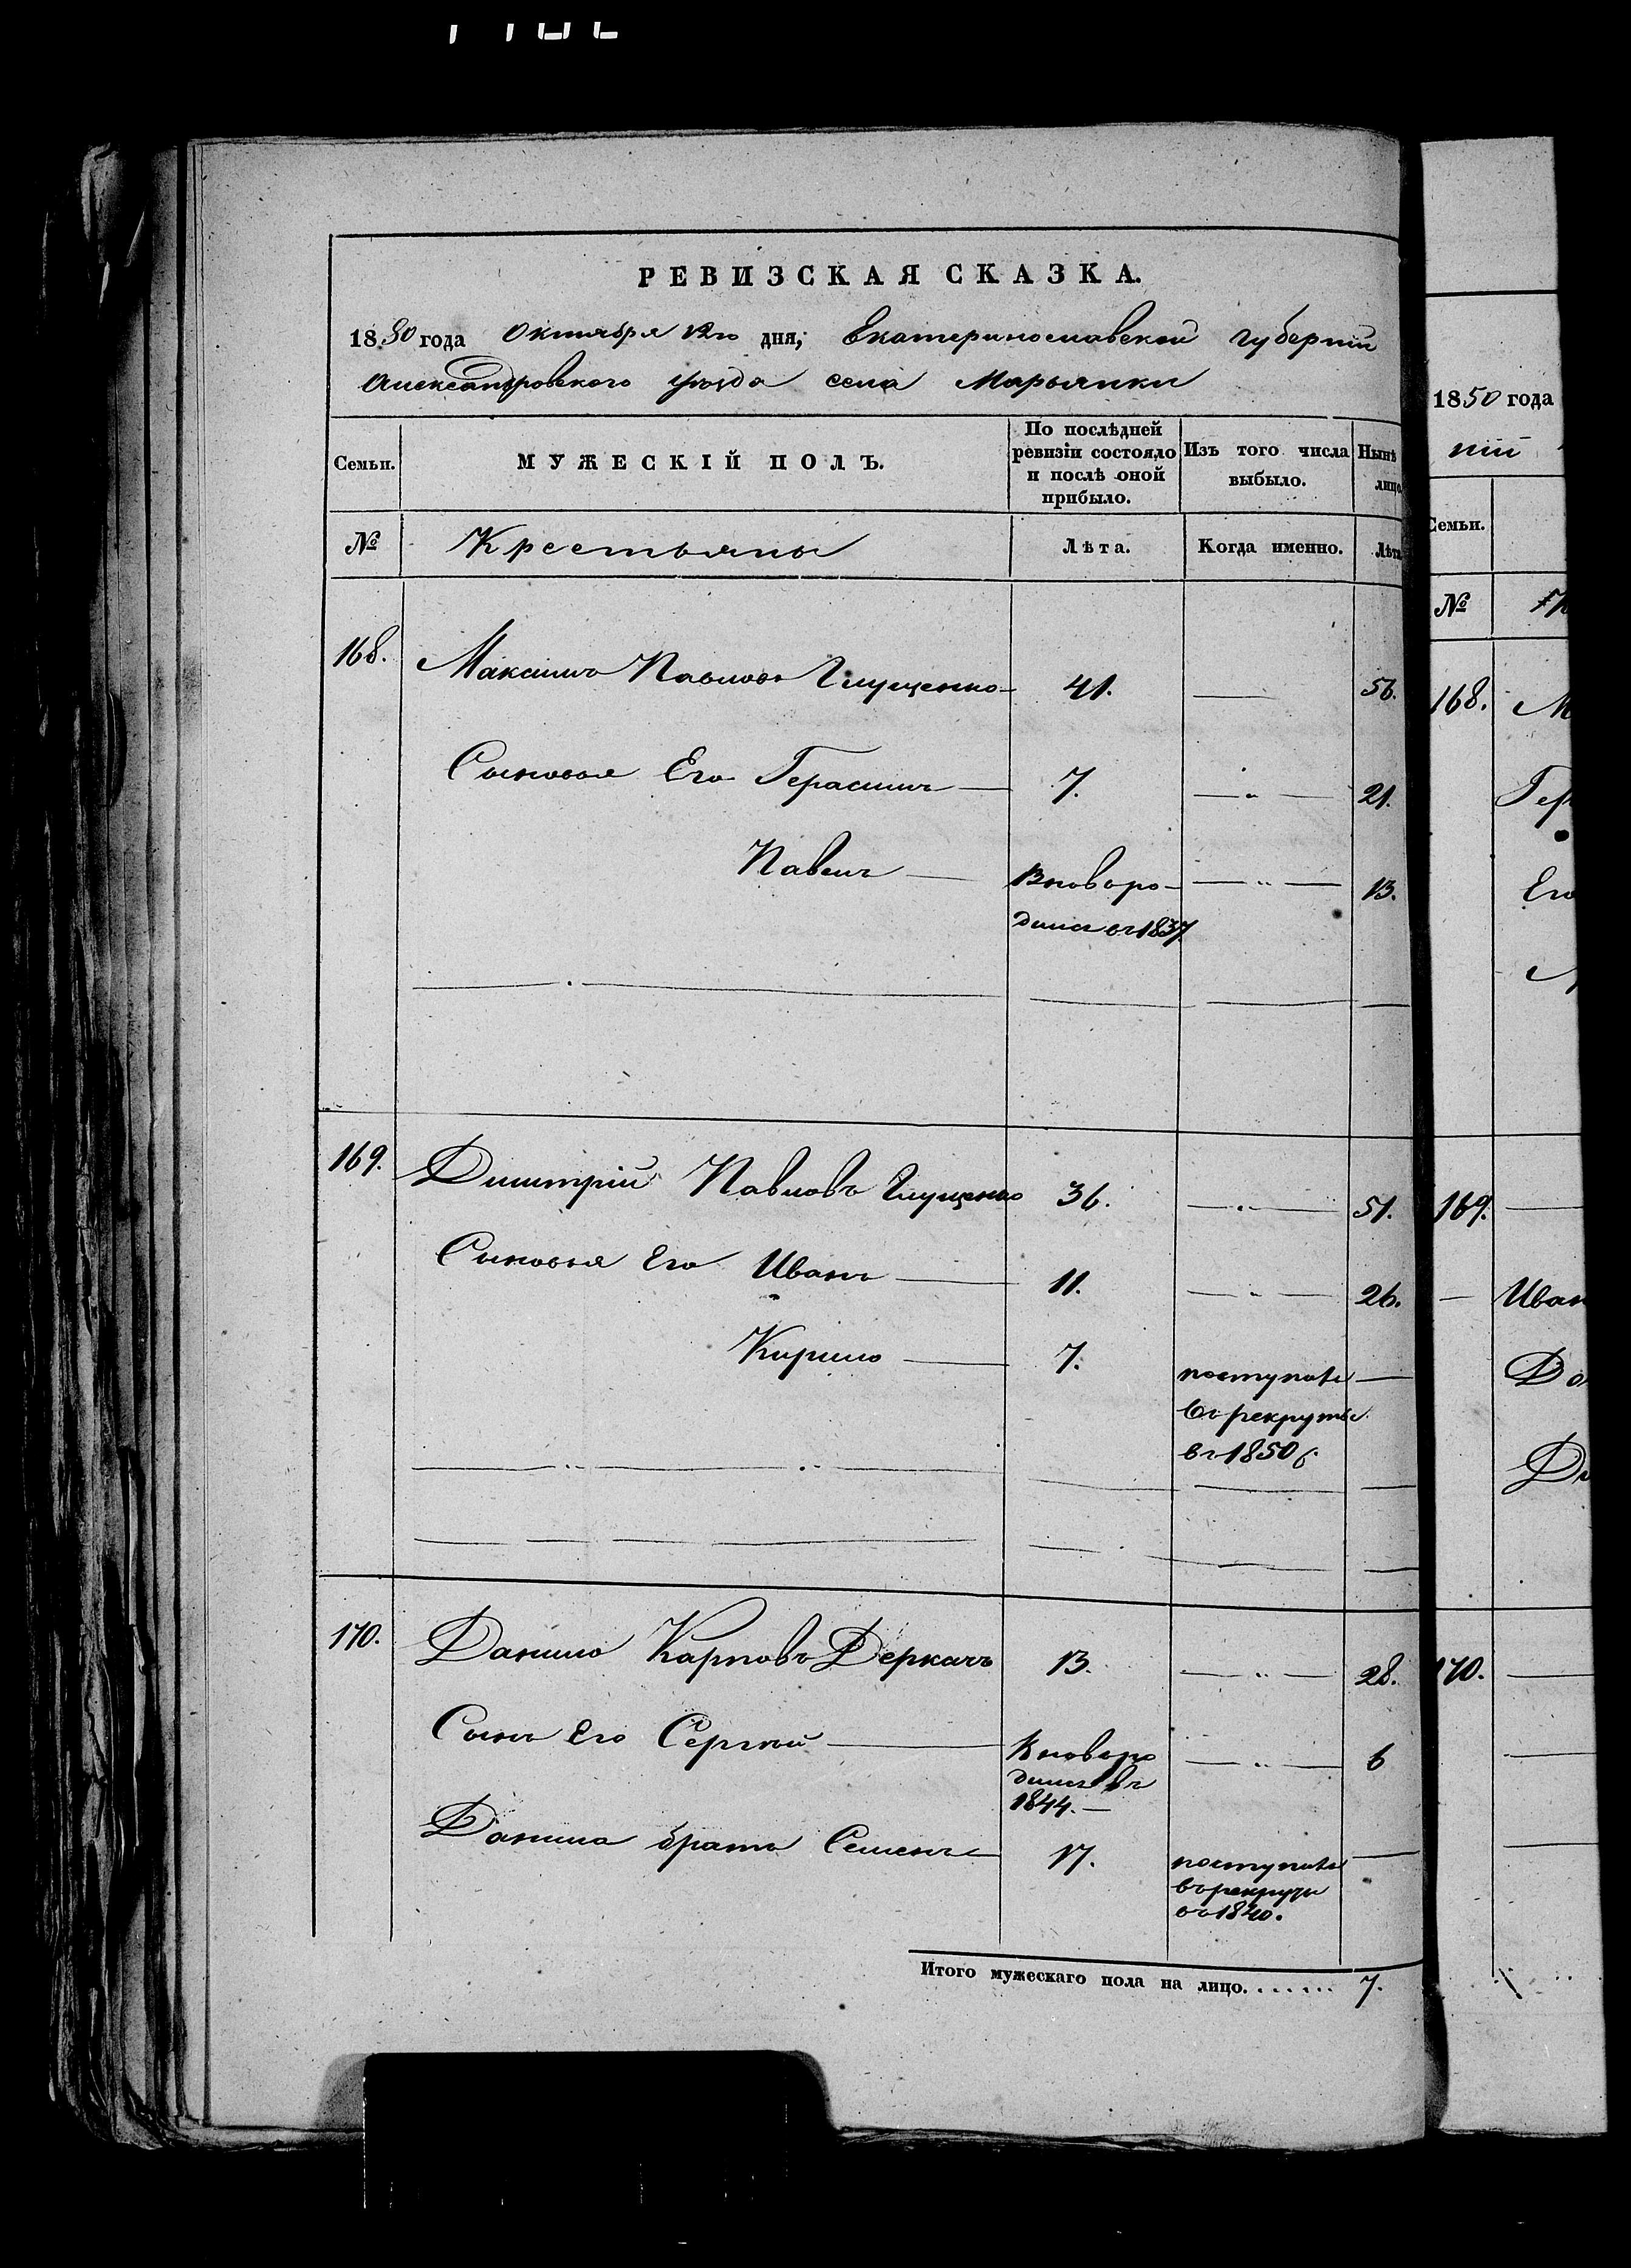 РЕВИЗСКАЯ СКАЗКА.
1850 года Октября 12го дня; Екатеринославской губерніи
Александровского уѣзда села Марьянки
Семьи. МУЖЕСКІЙ ПОЛЪ. По послѣдней ревизіи состояло и послѣ оной прибыло. Изъ того числа выбыло. Нынѣ лицо
№ Крестьяны Лѣта. Когда именно. Лѣта
168. Максимъ Павловъ Глущенко 41. — 56.
Сыновья Его Герасимъ — 7. — " — 21.
Павелъ — Вновь ро- — " — 13.
дился въ 1837
169. Димитрій Павловъ Глущенко 36. — " — 51.
Сыновья Его Иванъ — 11. — " — 26.
Кирило — 7. поступилъ —
въ рекруты
въ 1850 г.
170. Данило Карповъ Деркачъ 13. — " — 28.
Сынъ Его Сергѣй — Вновь ро — " — 6
дился въ
1844. —
Данила братъ Семенъ — 17. поступилъ —
въ рекруты
въ 1840.
Итого мужескаго пола на лицо. . . . . . . 7.
1850 года
ніи
Семьи.
№
168. М
Гер
Его
169. —
— Иван
До
170. —